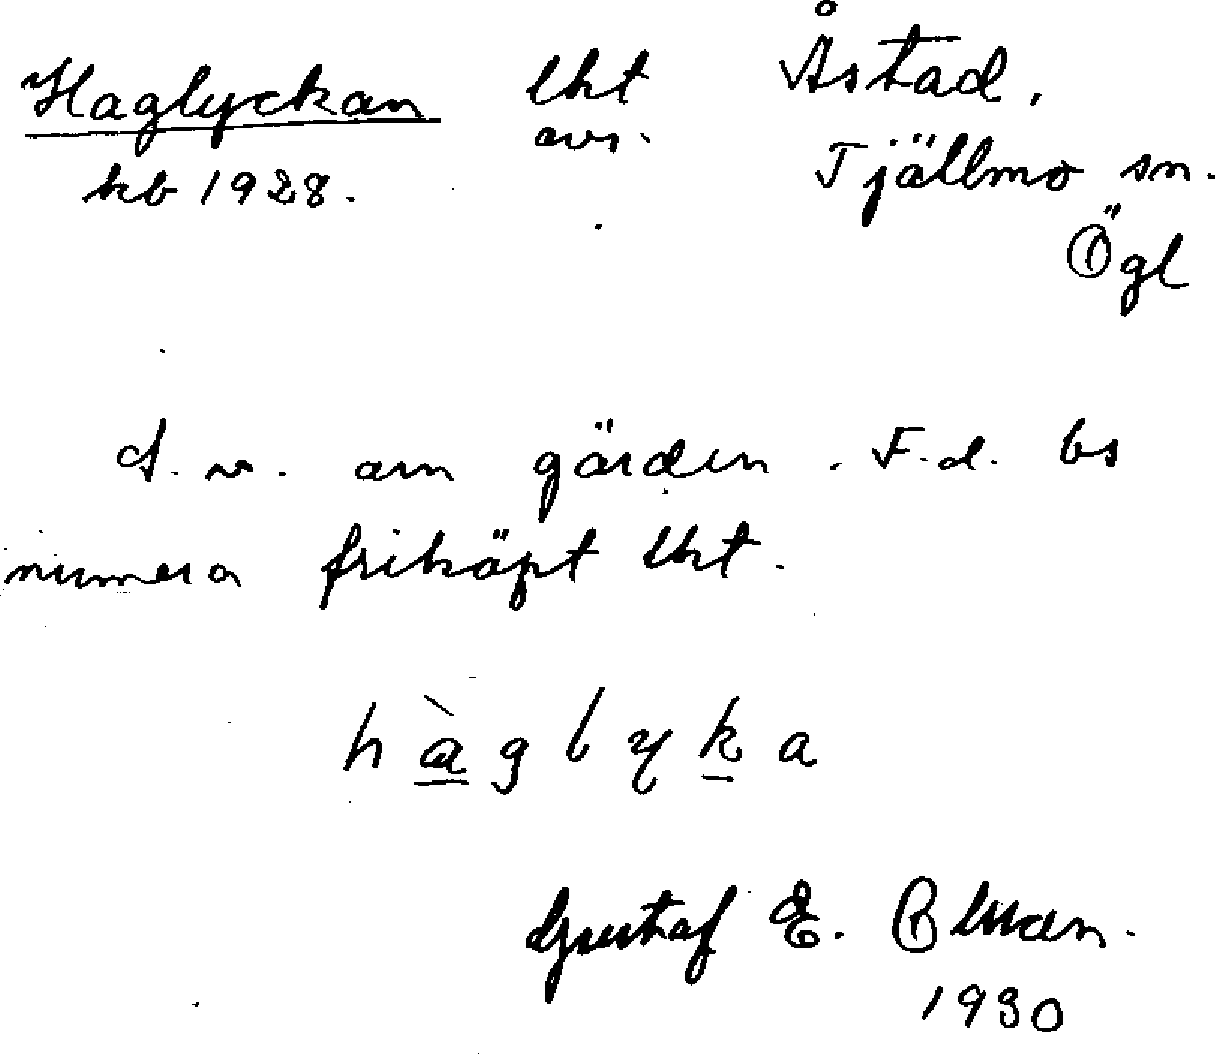 Haglyckan lht Åstad,
avs.
kb 1928. Tjällmo sn.
Ögl
S. v. om gården. F.d. bs
numera friköpt lht.
hàglyka
Gustaf E. Olman.
1930